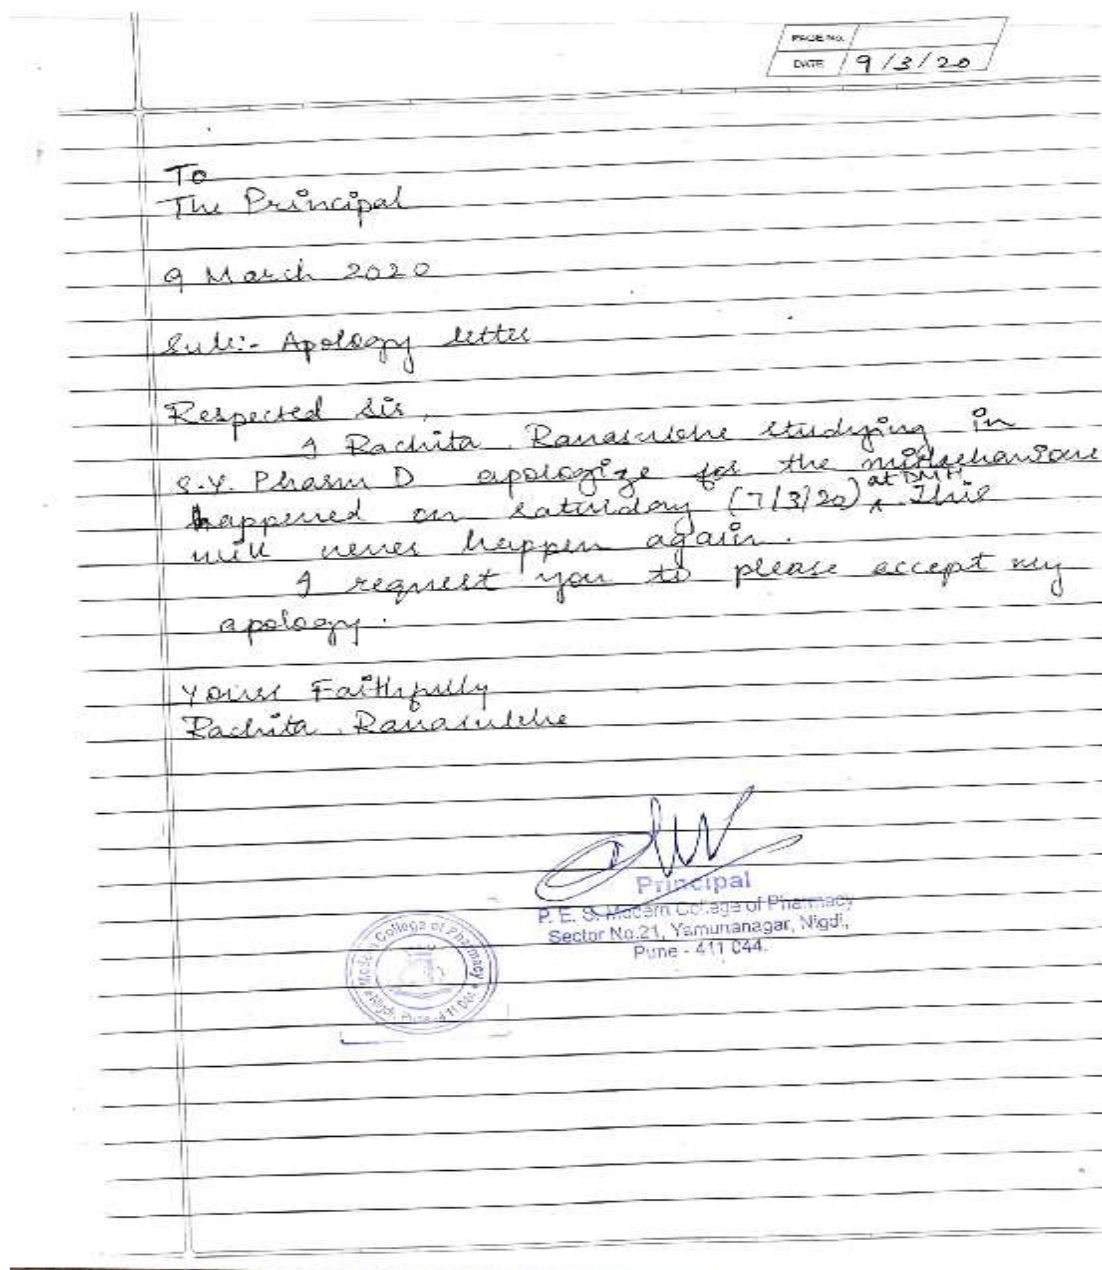 PAGE No.
DATE 9/3/20
To
The Principal
9 March 2020
Sub:- Apology letter
Respected Sir,
I Rachita Ranasubhe studying in
S.Y. Pharm D apologize for the misbehaviour
happened on saturday (7/3/20) at DMH. This
will never happen again.
I request you to please accept my
apology.
Yours Faithfully
Rachita Ranasubhe
Principal
P. E. S. Modern College of Pharmacy
Sector No.21, Yamunanagar, Nigdi,
Pune - 411 044.
Modern College of Pharmacy
Nigdi, Pune-411 044